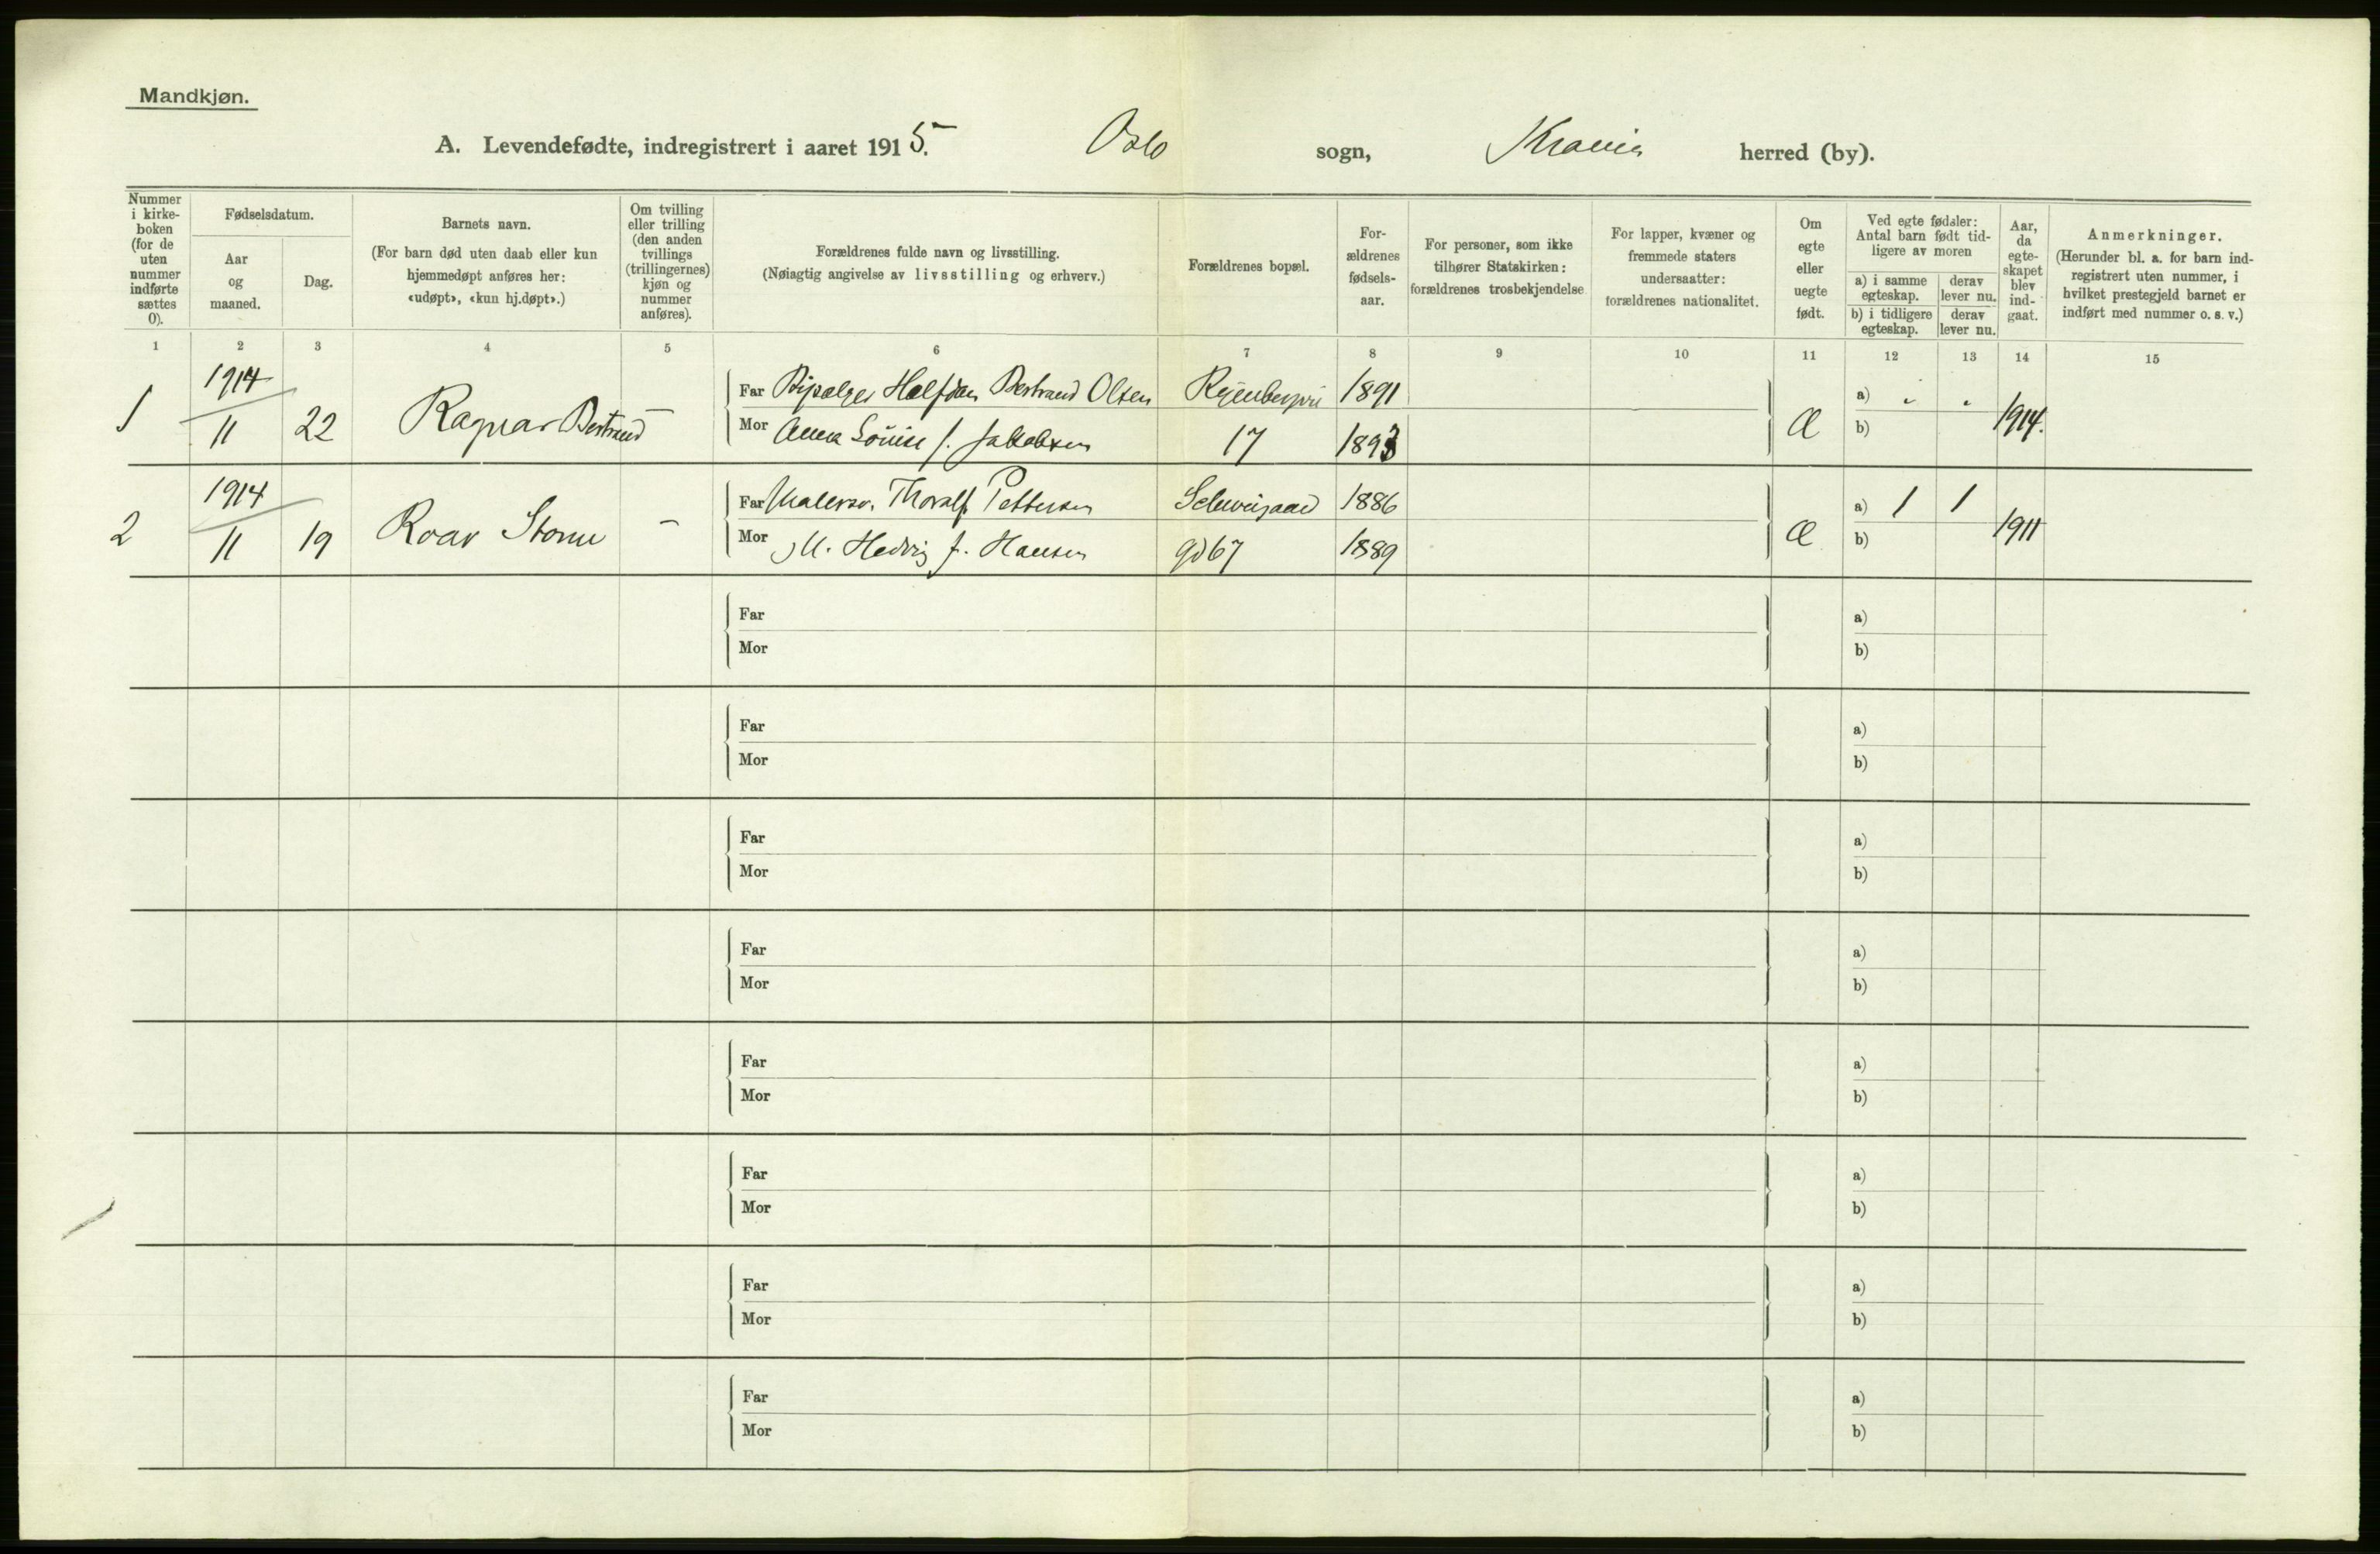 Mandkjøn.
A. Levendefødte, indregistrert i aaret 1915. Oslo sogn, Kr.ania herred (by).
Nummer i kirke-boken (for de uten nummer indførte sættes 0).
Fødselsdatum.
Aar og maaned.
Dag.
Barnets navn.
(For barn død uten daab eller kun hjemmedøpt anføres her: «udøpt», «kun hj.døpt».)
Om tvilling eller trilling (den anden tvillings (trillingernes) kjøn og nummer anføres).
Forældrenes fulde navn og livsstilling.
(Nøiagtig angivelse av livsstilling og erhverv.)
Forældrenes bopæl.
For-ældrenes fødsels-aar.
For personer, som ikke tilhører Statskirken: forældrenes trosbekjendelse
For lapper, kvæner og fremmede staters undersaatter: forældrenes nationalitet.
Om egte eller uegte født.
Ved egte fødsler: Antal barn født tid-ligere av moren
a) i samme egteskap.
derav lever nu.
b) i tidligere egteskap.
derav lever nu.
Aar, da egte-skapet blev ind-gaat.
Anmerkninger.
(Herunder bl. a. for barn ind-registrert uten nummer, i hvilket prestegjeld barnet er indført med nummer o. s. v.)
1 2 3 4 5 6 7 8 9 10 11 12 13 14 15
1 1914 11 22 Ragnar Bertrand —
Far Halfdan Bertrand Olsen 1891
Mor Anna Louise f. Jakobsen 17 1893
Æ a) " " b) 1914.
2 1914 11 19 Roar Storm —
Far Malersv. Thoralf Pettersen Schweigaard 1886
Mor M. Hedvig f. Hansen gd 67 1889
Æ a) 1 1 b) 1911
Far a)
Mor b)
Far a)
Mor b)
Far a)
Mor b)
Far a)
Mor b)
Far a)
Mor b)
Far a)
Mor b)
Far a)
Mor b)
Far a)
Mor b)